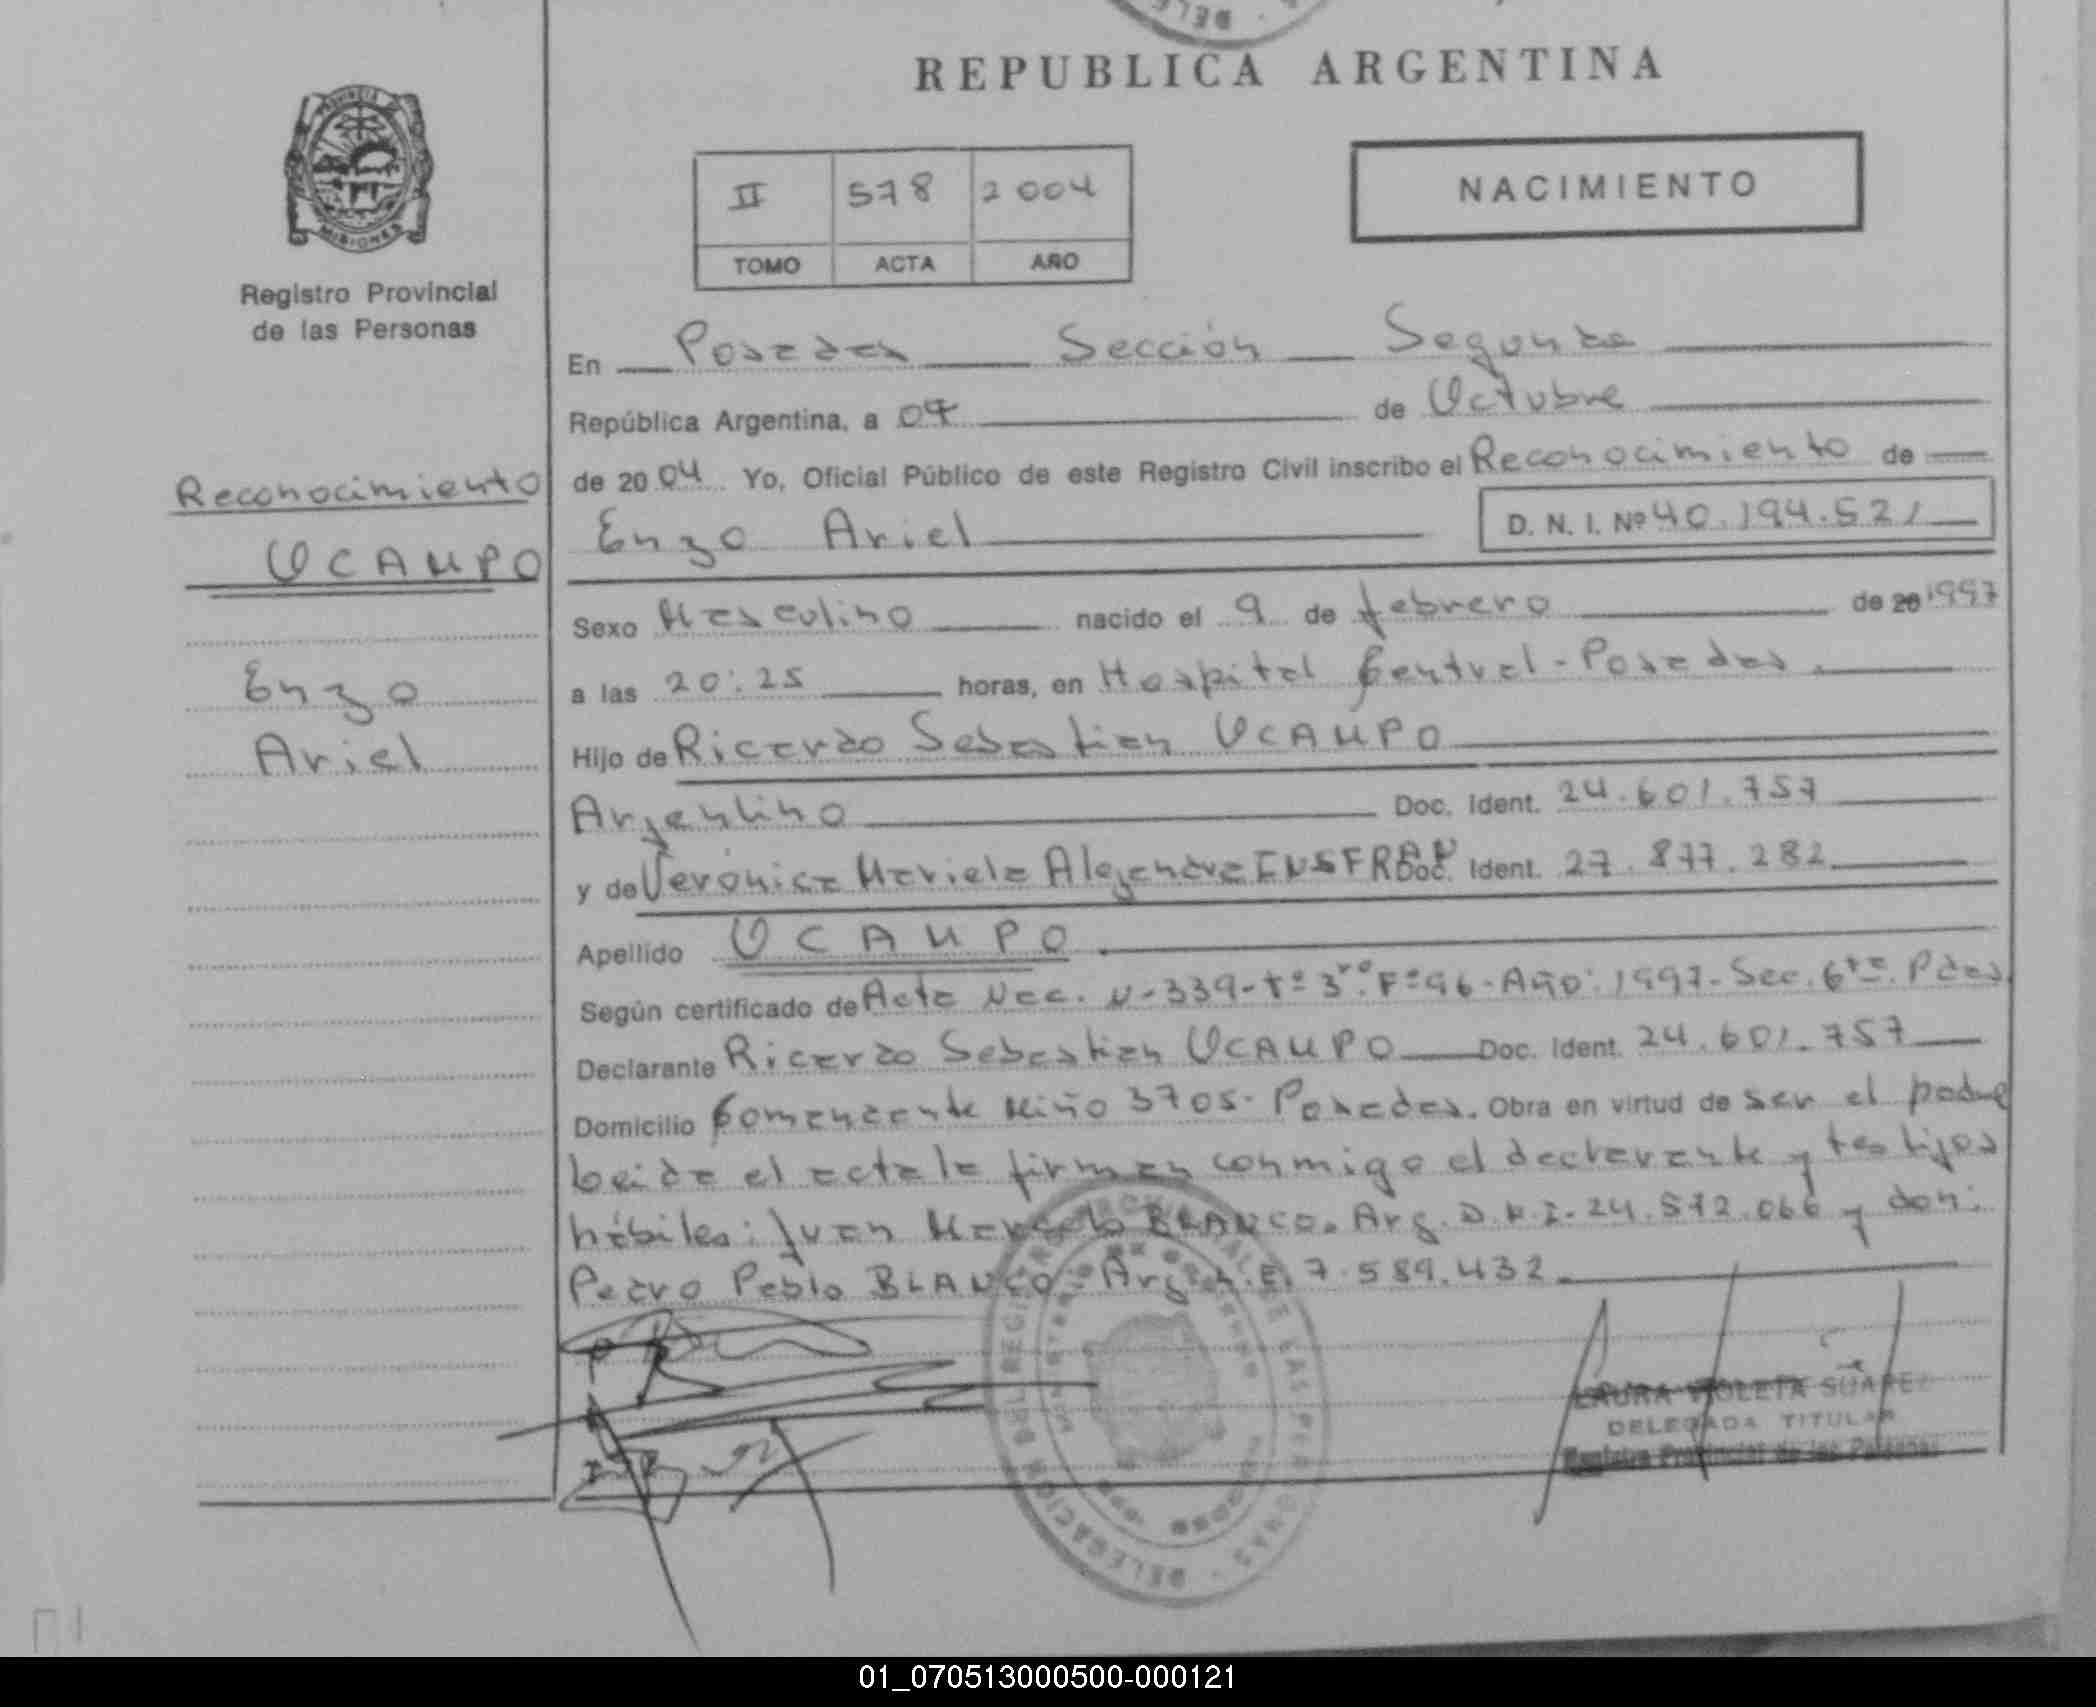 REPUBLICA ARGENTINA
PROVINCIA DE
MISIONES
Registro Provincial
de las Personas
II 578 2004
TOMO ACTA AÑO
NACIMIENTO
En Posadas Sección Segunda
República Argentina, a 07 de Octubre
de 2004 Yo, Oficial Público de este Registro Civil inscribo el Reconocimiento de
Enzo Ariel D. N. I. Nº 40.194.521
Reconocimiento
OCAMPO
Enzo
Ariel
Sexo Masculino nacido el 9 de febrero de 20 1997
a las 20:25 horas, en Hospital Central - Posadas.
Hijo de Ricardo Sebastian OCAMPO
Argentino Doc. Ident. 24.601.757
y de Verónica Mariela Alejandra INSFRAN Doc. Ident. 27.877.282
Apellido OCAMPO
Según certificado de Acta Nac. N-339-Tº 3ro. Fº 96-Año: 1997-Sec. 6ta. Pdas
Declarante Ricardo Sebastian OCAMPO Doc. Ident. 24.601.757
Domicilio Comandante Miño 3705- Posadas. Obra en virtud de ser el padre
Leida el acta la firman conmigo el declarante y testigos
hábiles: Juan Marcelo BLANCO. Arg. D.N.I. 24.572.066 y don:
Pedro Pablo BLANCO Arg. L.E. 7.589.432
LAURA VIOLETA SUAREZ
DELEGADA TITULAR
Registro Provincial de las Personas
01_070513000500-000121